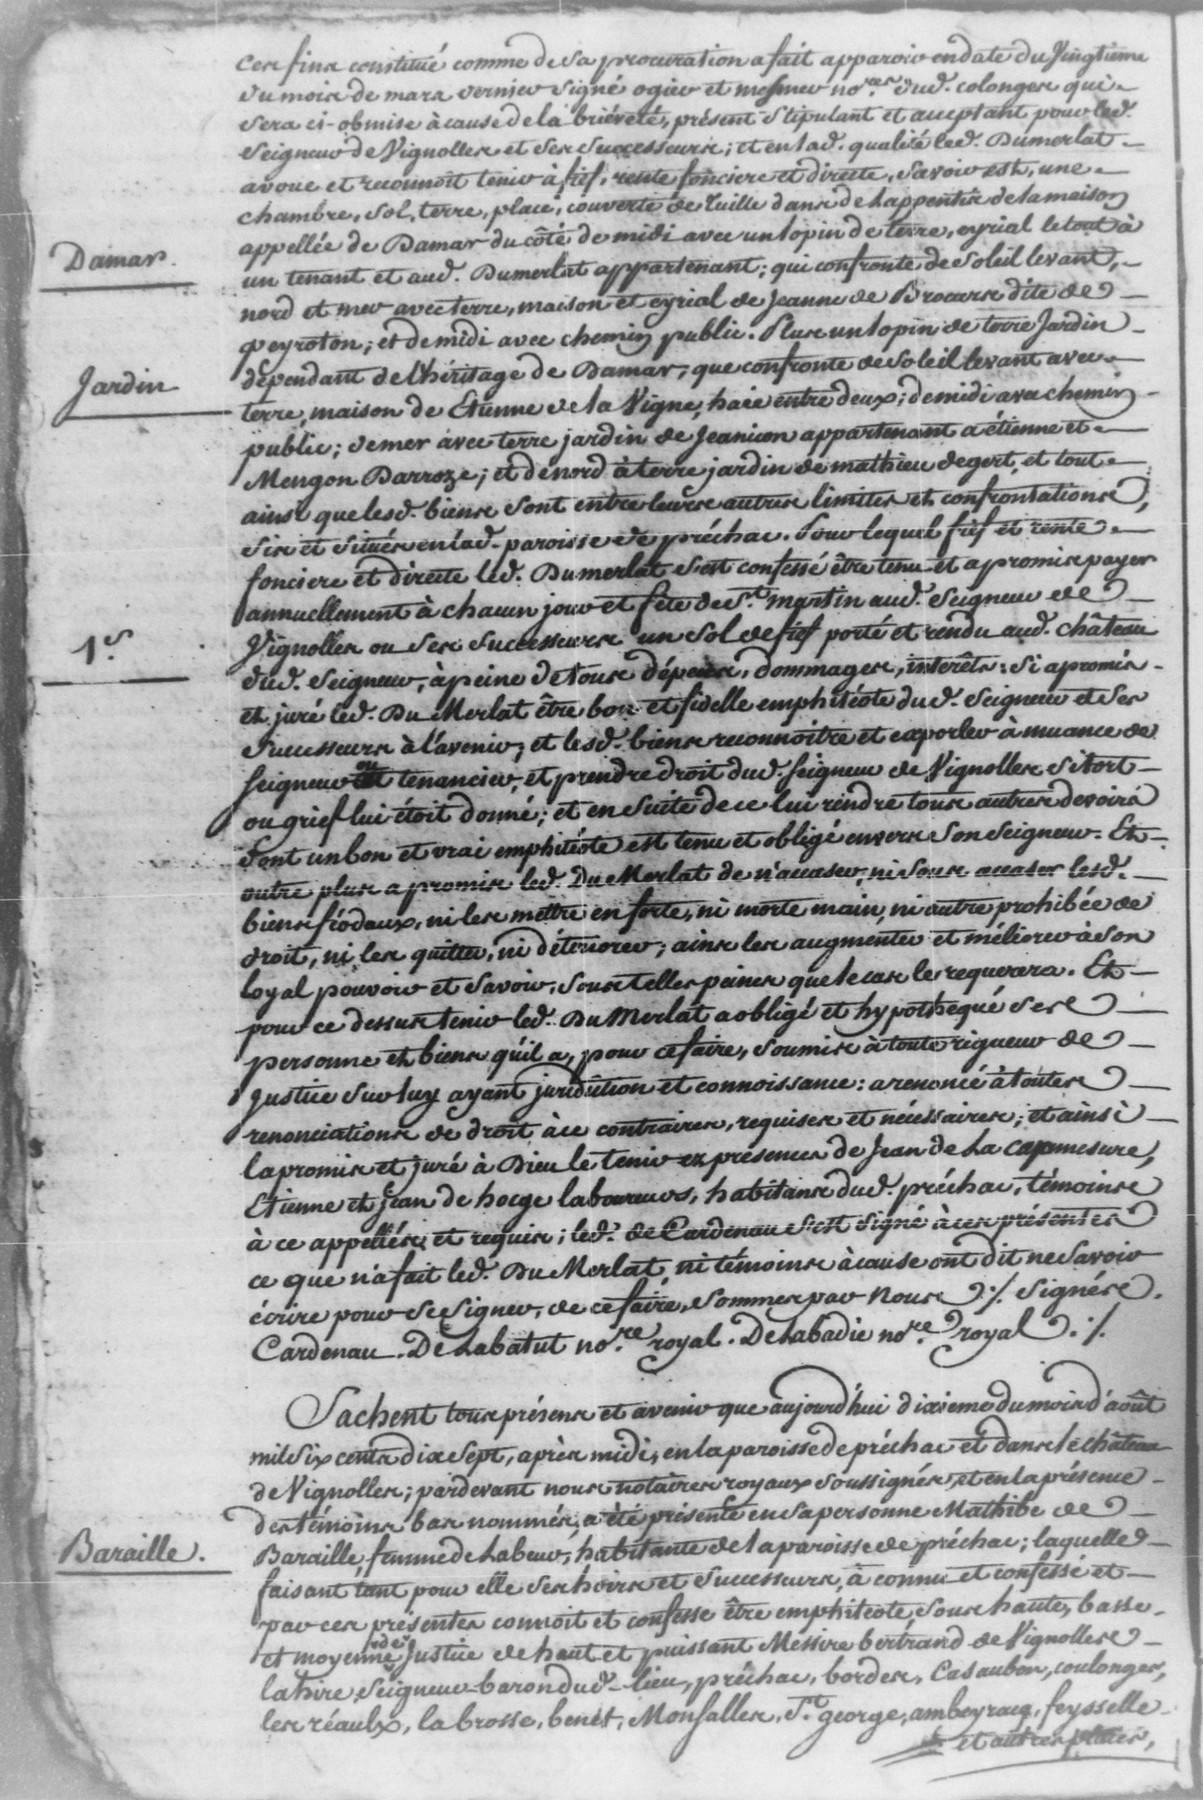 ces fins constitué comme de sa procuration a fait apparoir en date du Vingtieme
du mois de mars dernier signé ogier et mesmer no.res dud. colonges qui
sera ci-obmise à cause de la briéveté, présent stipulant et acceptant pour led.
Seigneur de Vignolles et ses successeurs; et en lad. qualité led. Dumerlat
avoue et reconnoit tenir à fief, rente fonciere et directe, savoir est, une
chambre, sol, terre, place, couverte de tuille dans de Lappentis de la maison
Damar.
appellée de Damar du côté de midi avec un lopin de terre, eyrial le tout à
un tenant et aud. Dumerlat appartenant; qui confronte de soleil levant,
nord et mer avec terre, maison et eyrial de Jeanne de Brocars dite de
peyroton; et de midi avec chemin public. Plus un lopin de terre Jardin
Jardin
dépendant de l'héritage de Damar, que confronte de soleil levant avec
terre, maison de Etienne de la Vigne, haie entre deux; de midi avec chemin
public; de mer avec terre jardin de Jeanicon appartenant a étienne et
Mengon Barroze; et de nord à terre jardin de mathieu degert, et tout
ainsi que lesd. biens sont entre leurs autres limites et confrontations,
sis et situés en lad. paroisse de préchac. Pour lequel fief et rente
fonciere et directe led. Dumerlat s'est confessé être tenu et a promis payer
annuellement à chacun jour et fête de St. martin aud. Seigneur de
1.s
Vignolles ou ses successeurs un sol de fief porté et rendu aud. château
dud. Seigneur, à peine de tous dépens, dommages, interêts: Si a promis
et juré led. Du Merlat être bon et fidelle emphitéote dud. Seigneur et ses
successeurs à l'avenir; et lesd. biens reconnoitre et exporler à muance de
seigneur ou tenancier, et prendre droit dud. seigneur de Vignolles si tort
ou grief lui étoit donné; et en suite de ce lui rendre tous autres devoirs
dont un bon et vrai emphitéote est tenu et obligé envers son seigneur. Et
outre plus a promis led. Du Merlat de n'accaser, ni sous accaser lesd.
biens féodaux, ni les mettre en forte, ni morte main, ni autre prohibée de
droit, ni les quitter, ni détériorer; ains les augmenter et méliorer à son
loyal pouvoir et savoir, sous telles peines que le cas le requerera. Et
pour ce dessus tenir led. Du Merlat a obligé et hypothequé ses
personne et biens qu'il a, pour ce faire, soumis à toute rigueur de
Justice sur luy ayant juridiction et connoissance: a renoncé à toutes
renonciations de droit à ce contraires, requises et nécessaires; et ainsi
la promis et juré à Dieu le tenir ez présences de Jean de La Capmesure,
Etienne et Jean de hocge laboureurs, habitans dud. préchac, témoins
à ce appellés et requis; led. de Cardenau s'est signé à ces présentes
ce que n'a fait led. Du Merlat ni témoins à cause ont dit ne savoir
écrire pour se signer, de ce faire, sommés par nous ./. Signés.
Cardenau. De Labatut no.re royal. De Labadie no.re royal ./.
Sachent tous présens et avenir que aujourd'hui dixieme du mois d'août
mil six cents dix sept, après midi, en la paroisse de préchac et dans le château
de Vignolles; pardevant nous notaires royaux soussignés, et en la présence
des témoins bas nommés, a été présente en sa personne Mathibe de
Baraille.
Baraille, femme de Labeur, habitante de la paroisse de préchac; laquelle
faisant tant pour elle ses hoirs et successeurs, à connu et confessé et
par ces présentes connoit et confesse être emphitéote, sous haute, basse
et moyenne de Justice de haut et puissant Messire bertrand de Vignolles
lahire seigneur baron dud. lieu, préchac, bordes, Casaubon, coulonges,
les réaulx, la brosse, benet, Monsalles, St. george, ambeyracq, feysselle
et autres places,